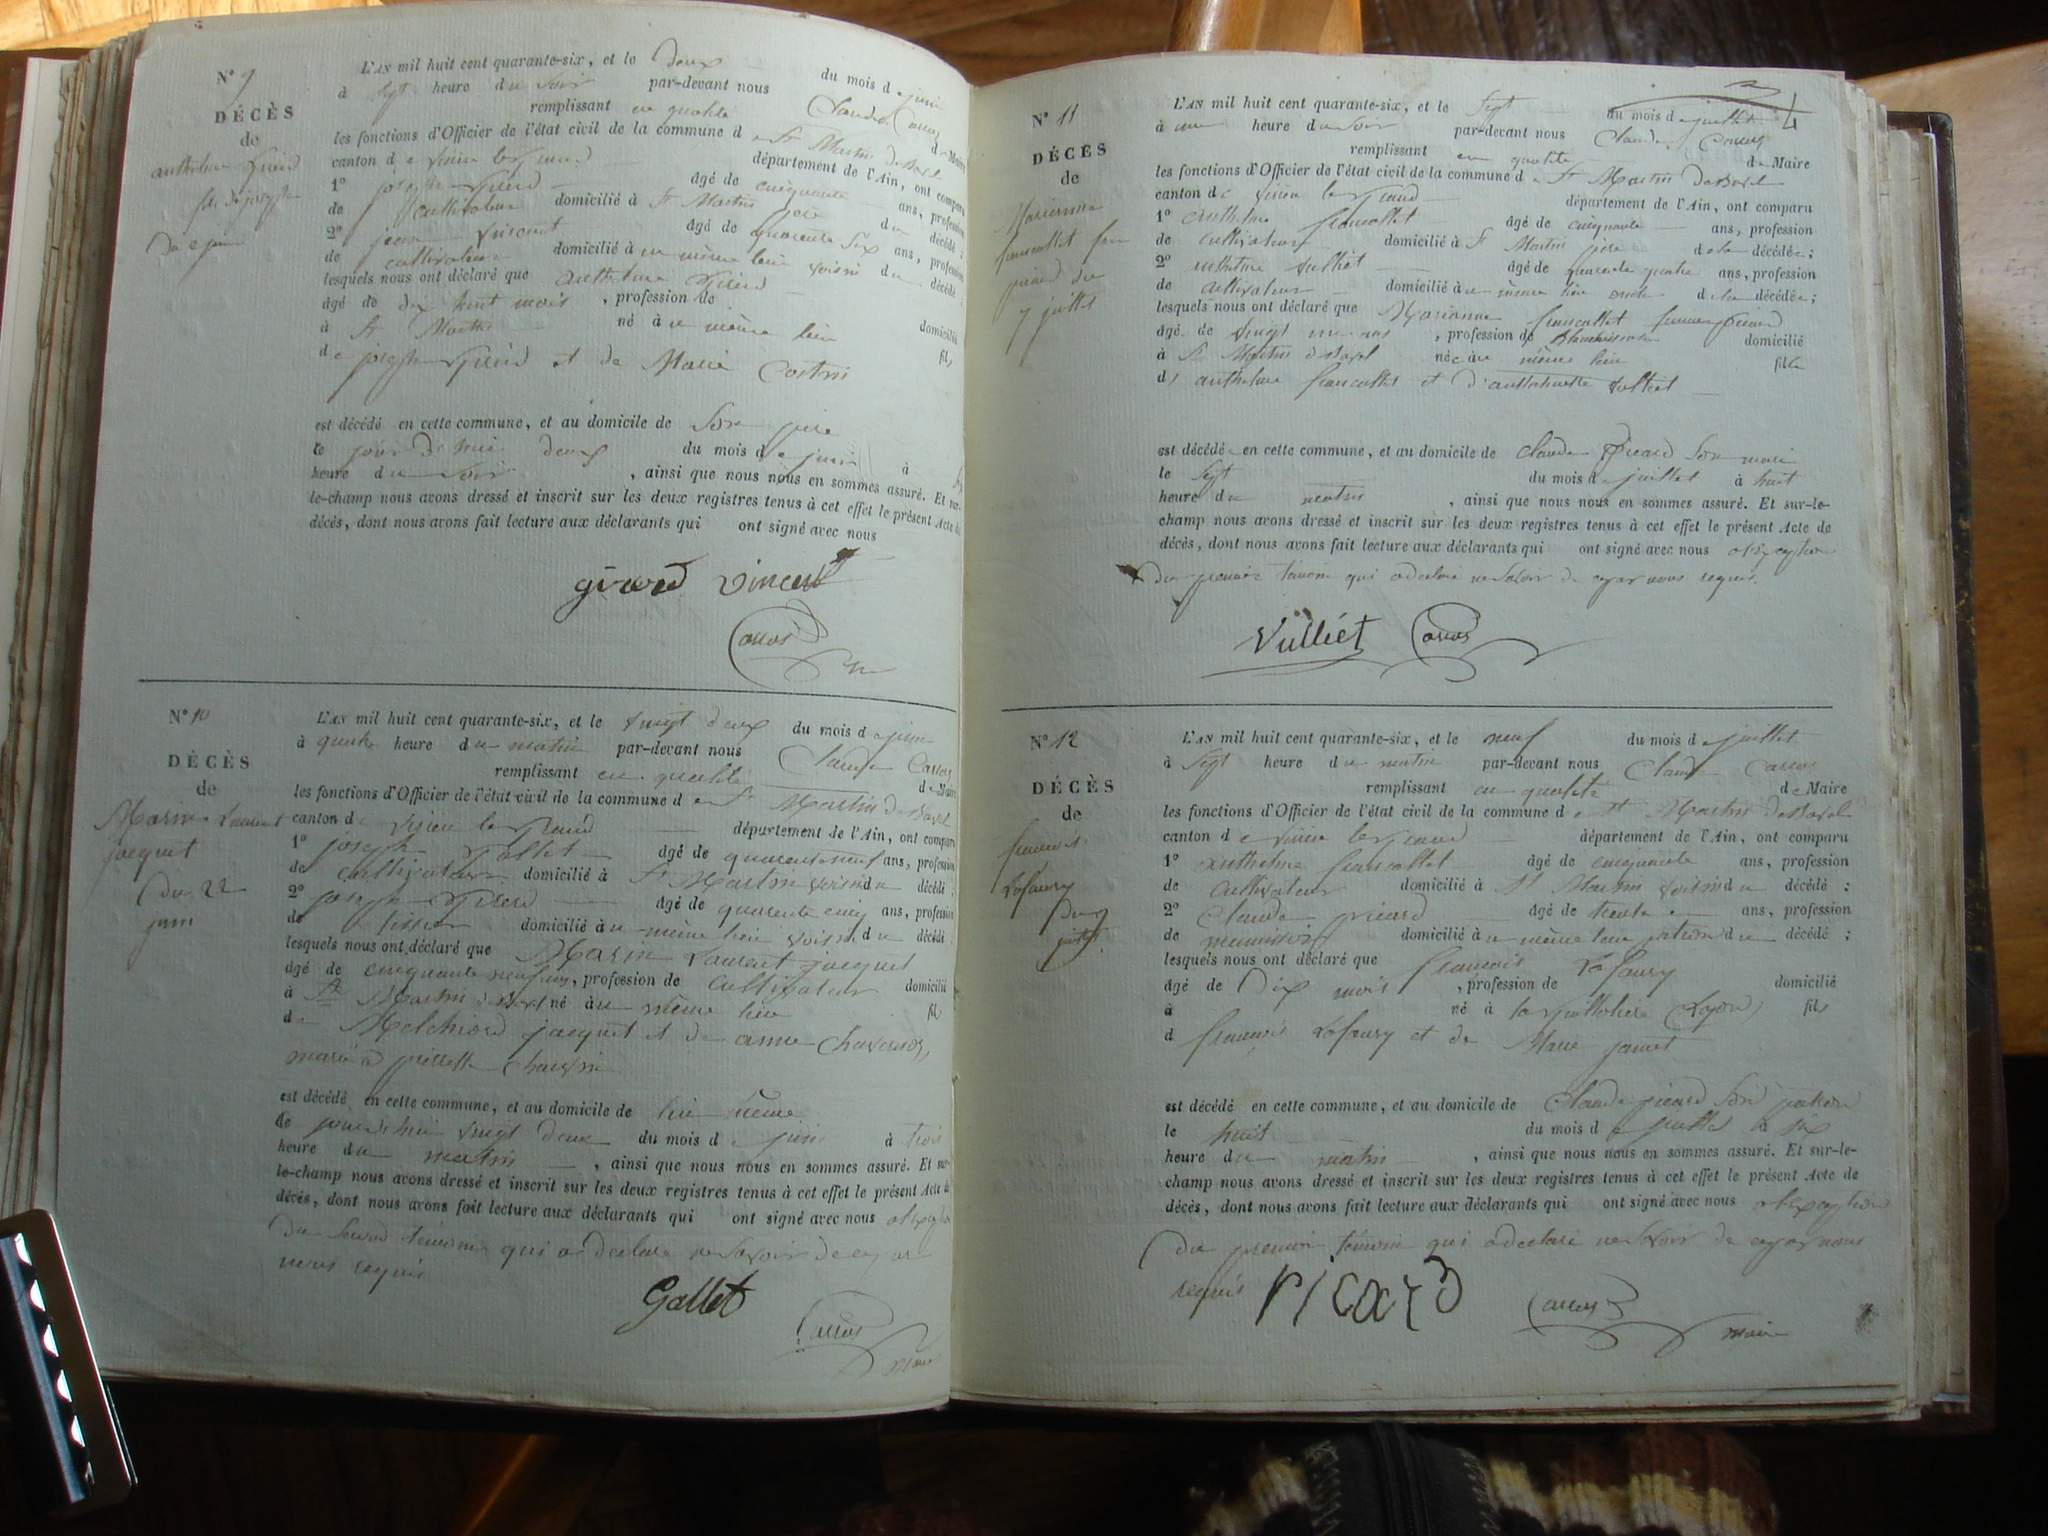 N° 9
DÉCÈS
de
anthelme
fils de joseph
du 2 juin
L'AN mil huit cent quarante-six, et le deux du mois de juin
à sept heure du soir par-devant nous Claude Carros
remplissant en qualité de Maire
les fonctions d'Officier de l'état civil de la commune de St Martin de Bavel
canton de virieu le grand département de l'Ain, ont comparu
1° joseph âgé de cinquante ans, profession
de cultivateur domicilié à St Martin père du décédé ;
2° jean vincent âgé de quarante six ans, profession
de cultivateur domicilié à u même lieu voisin du décédé ;
lesquels nous ont déclaré que anthelme
âgé de dix huit mois , profession de domicilié
à St Martin né à u même lieu fils
de joseph et de Marie
est décédé en cette commune, et au domicile de son père
le jour de deux du mois de juin à
heure du soir , ainsi que nous nous en sommes assuré. Et sur-
le-champ nous avons dressé et inscrit sur les deux registres tenus à cet effet le présent Acte de
décès, dont nous avons fait lecture aux déclarants qui ont signé avec nous
girard vincent
Carros
N° 10
DÉCÈS
de
Marin Laurent
jacquet
Du 22
juin
L'AN mil huit cent quarante-six, et le vingt deux du mois de juin
à quatre heure du matin par-devant nous Claude Carros
remplissant en qualité de Maire
les fonctions d'Officier de l'état civil de la commune de St Martin de Bavel
canton de virieu le grand département de l'Ain, ont comparu
1° joseph Gallet âgé de quarante neuf ans, profession
de cultivateur domicilié à St Martin voisin du décédé ;
2° joseph âgé de quarante cinq ans, profession
de tissier domicilié à u même lieu voisin du décédé ;
lesquels nous ont déclaré que Marin Laurent jacquet
âgé de cinquante neuf ans, profession de cultivateur domicilié
à St Martin de Bavel né à u même lieu fils
de Melchiord jacquet et de anne
marié à pierrette
est décédé en cette commune, et au domicile de lui même
le jourd'hui vingt deux du mois de juin à trois
heure du matin , ainsi que nous nous en sommes assuré. Et sur-
le-champ nous avons dressé et inscrit sur les deux registres tenus à cet effet le présent Acte de
décès, dont nous avons fait lecture aux déclarants qui ont signé avec nous
du second témoin qui a déclaré ne savoir de
nous requis
Gallet
Carros
maire
N° 11
DÉCÈS
de
Marianne
francallet fme
picard du
7 juillet
L'AN mil huit cent quarante-six, et le sept du mois de juillet
à une heure du soir par-devant nous Claude Carros
remplissant en qualité de Maire
les fonctions d'Officier de l'état civil de la commune de St Martin de Bavel
canton de virieu le grand département de l'Ain, ont comparu
1° anthelme francallet âgé de cinquante ans, profession
de cultivateur domicilié à St Martin père de la décédée ;
2° anthelme vulliet âgé de quarante quatre ans, profession
de cultivateur domicilié à u même lieu oncle de la décédée ;
lesquels nous ont déclaré que Marianne francallet femme picard
âgée de vingt ans , profession de domicilié
à St Martin de Bavel née à u même lieu fille
d' anthelme francallet et d'antoinette vulliet
est décédée en cette commune, et au domicile de claude picard son mari
le sept du mois de juillet à huit
heure du matin , ainsi que nous nous en sommes assuré. Et sur-le-
champ nous avons dressé et inscrit sur les deux registres tenus à cet effet le présent Acte de
décès, dont nous avons fait lecture aux déclarants qui ont signé avec nous
du premier témoin qui a déclaré ne savoir de nous requis.
Vulliét Carros
N° 12
DÉCÈS
de
francois
Lafaury
Du 9
juillet
L'AN mil huit cent quarante-six, et le neuf du mois de juillet
à sept heure du matin par-devant nous Claude Carros
remplissant en qualité de Maire
les fonctions d'Officier de l'état civil de la commune de St Martin de Bavel
canton de virieu le grand département de l'Ain, ont comparu
1° anthelme francallet âgé de cinquante ans, profession
de cultivateur domicilié à St Martin voisin du décédé ;
2° Claude picard âgé de trente ans, profession
de menuisier domicilié à u même lieu patron du décédé ;
lesquels nous ont déclaré que francois Lafaury
âgé de dix mois , profession de domicilié
à né à la guillotiere (Lyon) fils
d francois Lafaury et de Marie
est décédé en cette commune, et au domicile de Claude picard son patron
le huit du mois de juillet à six
heure du matin , ainsi que nous nous en sommes assuré. Et sur-le-
champ nous avons dressé et inscrit sur les deux registres tenus à cet effet le présent Acte de
décès, dont nous avons fait lecture aux déclarants qui ont signé avec nous
du premier témoin qui a déclaré ne savoir de nous
requis PICARD Carros
maire